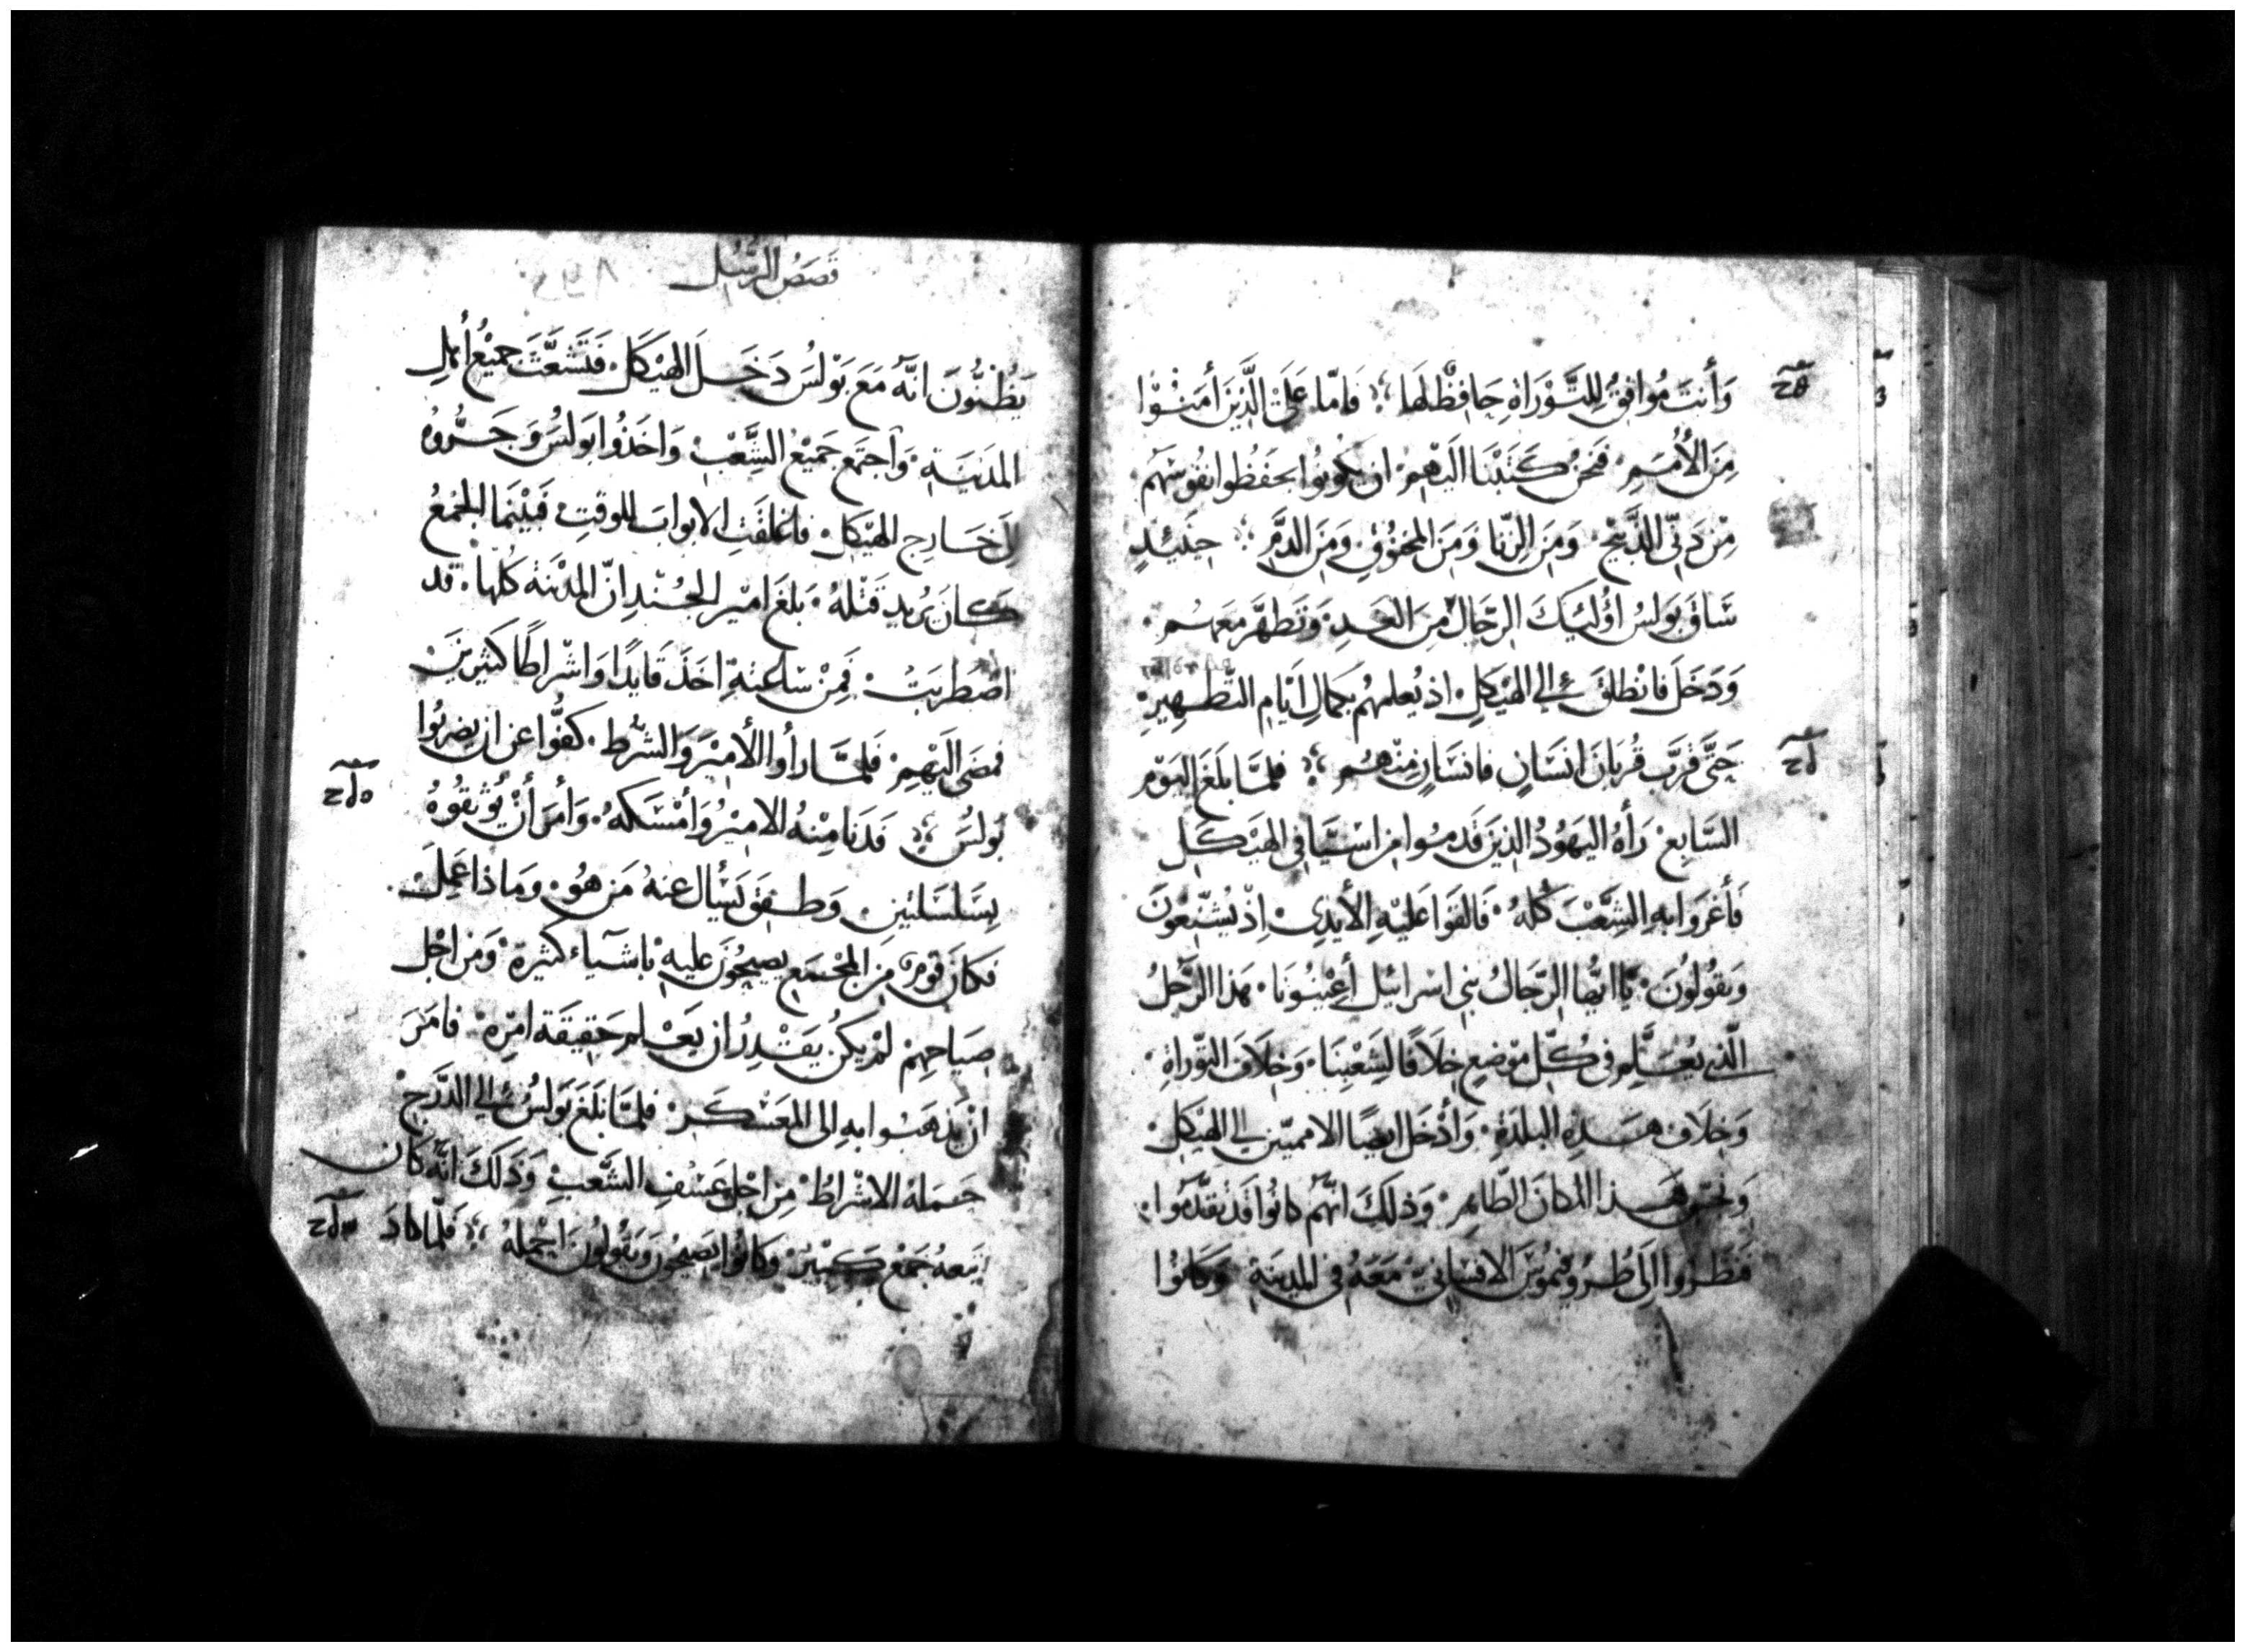 وَأنتَ مُوافِقُ لِلتَّوْرَاةِ حَافِظٌ لَهَا فَامّا عَلَى الَّذِيْنَ أمَنُوْا
مِنَ الأُمَمِ فَنَحنُ كَتَبْنَا اليَهِمْ ان يكُونُوا يحَفَظُوا نفُوسَهم
مِنْ دَبّى الذَّبِيْحِ وَمِنَ الزِنّا وَمِنَ المخنُوْقِ وَمِنَ الدَّمِ حِيْنَئِذٍ
سَاقَ بَولسُ اوُلئِكَ الرِّجَالَ مِنَ الغَدِ وَتَطهَّرَ مَعَهُم
وَدَخَلَ فَانْطَلقَ إلى الهَيْكلِ اذ يُعلمهُم بكمالِ ايَامِ التَّطهِيرِ
حَتَّى قُرّبَ قُربَانَ انسَانٍ فانسَانٍ مِنْهُم فلمّا بَلغَ اليَوْم
السَّابعْ رَأهُ اليَهُودُ الذِينَ قَدمُوا مِن اسْيّا في الهَيْكَلِ
فَأغرَوا بهِ الشَّعْبَ كُلّهُ فَالقَوا عَليْهِ الأيدِى اِذْ يُشَنِّعُونَ
وَيقُولُونَ يَا ايُّها الرّجَالُ بَنِي اسرائيل أعِيْنُونَا هَذا الرّجُلُ
الَّذي يُعَلّم فى كُلّ مَوْضِعٍ خِلاَفًا لِشَعْبِنَا وَخِلاَفَ التوّراةِ
وَخِلاَفَ هَذهِ البلدَةِ وَأدْخَلَ ايضًا الامميّين الي الهَيْكل
وَنجّسَ هَذا المكانَ الطّاهِر وَذلِكَ انّهُم كانُوا قَدْ تقدّمُوا
فَنَظَرُوا إلَى طُرُوفيمُوسَ الافسَانيّ مَعَهُ فى المدينَةِ وَكَانُوْا
قَصَصُ الرُّسُل
يَظُنُّونَ انَّهُ مَعَ بَوْلسُ دَخَلَ الهَيْكَلَ فَتَشَعَّثَ جَمِيْعُ أهلِ
المَدِيَنةِ وَاجتَمعَ جَمِيْعُ الشَّعْبِ وَاخَذُوا بَولسُ وَجَرُّوهُ
إلى خَارِجِ الهَيْكل فاغلقَتِ الابوابَ للوقتِ فَبيْنَما الجَمعُ
كَانَ يُرِيد قَتْلهُ بَلغَ امِير الجُنْدِ انّ المَدِيْنَة كلها قَد
اضْطَربَتْ فَمِنْ سَاعَتِهِ اخَذَ قَايدًا وَاشْراطًا كَثيرِيْنَ
فمضَى اليْهِمْ فَلمّا رَأوا الأمِيْرَ وَالشُّرَط كفُّوا عَن ان يضربُوا
بَولسُ فَدَنا مِنْهُ الامِيْرُ وَأمْسَكهُ وَأمَرَ أنْ يُوْثقُوْهُ
بسَلسَلتَين وَطفِقَ يَسْألُ عنهُ مَن هُو وَمَا ذا عَمِلَ
فَكانَ قومٌ مِن المجْمَع يصِيحُونَ عليهِ باشيآء كثيرة وَمِن اجْل
صِيَاحِهِمْ لمْ يكنْ يَقْدِرُ ان يَعْلم حَقِيقَة امرِهِ فامَرَ
انْ يَذهَبُوا بهِ الى المعَسْكر فلمّا بَلَغَ بَولسُ الي الدَّرَجِ
حَملهُ الاشْراطُ مِن اجْل عَسْفِ الشَّعْبِ وَذَلكَ انّهُ كَان
يَتبعهُ جَمْعٌ كَثِيْرٌ وكانُوا يَصِيحُونَ وَيقُولُونَ احْملهُ فَلمّا كادَ